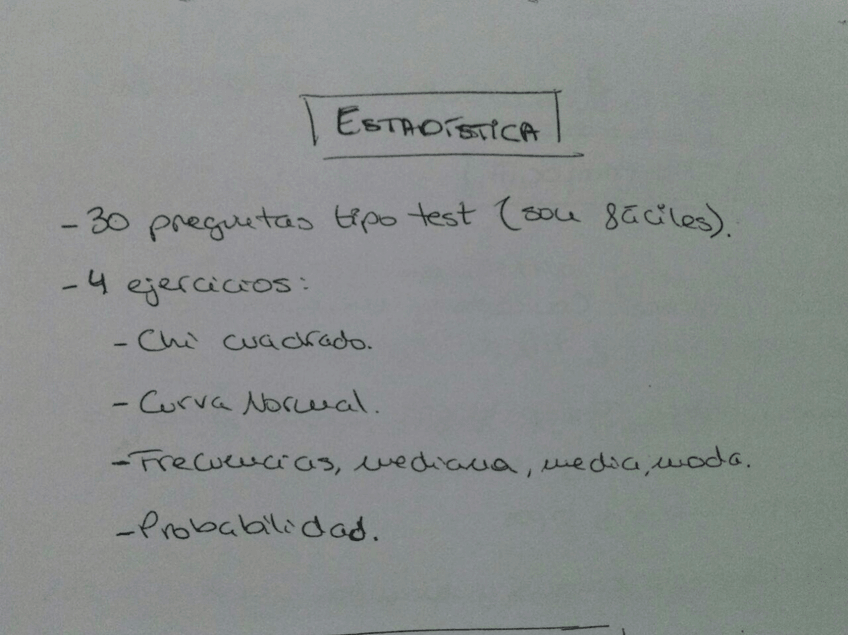 ESTADÍSTICA
- 30 preguntas tipo test (son fáciles).
- 4 ejercicios:
- Chi cuadrado.
- Curva Normal.
- Frecuencias, mediana, media, moda.
- Probabilidad.